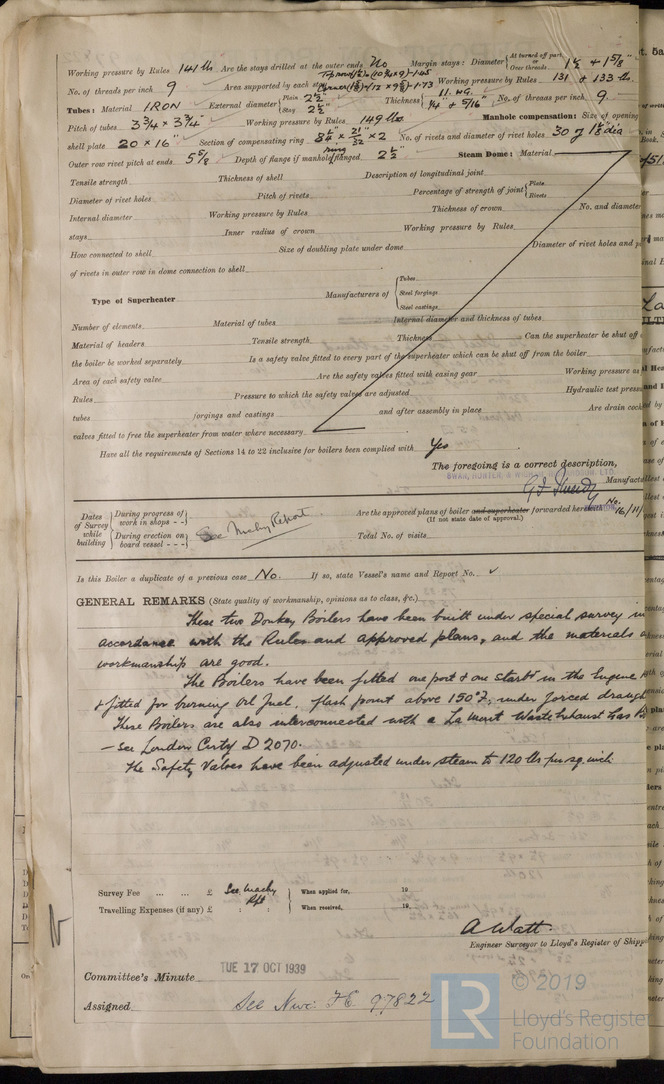 Working pressure by Rules 141 lb Are the stays drilled at the outer ends No Margin stays: Diameter { At turned off part or Over threads 1½ + 1⅝"
No. of threads per inch 9 Area supported by each stay Working pressure by Rules 131 + 133 lb.
Tubes: Material IRON External diameter { Plain 2½" Stay 2½" Thickness { 11. WG. ¼" + 5/16" No. of threads per inch 9.
Pitch of tubes 3¾ × 3¾" Working pressure by Rules 149 lbs Manhole compensation: Size of opening
shell plate 20 × 16" Section of compensating ring 8¼ × 21/32 × 2 No. of rivets and diameter of rivet holes 30 of 1⅛ dia
Outer row rivet pitch at ends 5⅝ Depth of flange if manhole flanged ring 2½" Steam Dome: Material
Tensile strength Thickness of shell Description of longitudinal joint
Diameter of rivet holes Pitch of rivets Percentage of strength of joint { Plate Rivets
Internal diameter Working pressure by Rules Thickness of crown No. and diameter
stays Inner radius of crown Working pressure by Rules
How connected to shell Size of doubling plate under dome Diameter of rivet holes and
of rivets in outer row in dome connection to shell
Type of Superheater Manufacturers of { Tubes Steel forgings Steel castings
Number of elements Material of tubes Internal diameter and thickness of tubes
Material of headers Tensile strength Thickness Can the superheater be shut off
the boiler be worked separately Is a safety valve fitted to every part of the superheater which can be shut off from the boiler
Area of each safety valve Are the safety valves fitted with easing gear Working pressure as
Rules Pressure to which the safety valves are adjusted Hydraulic test pressure
tubes forgings and castings and after assembly in place Are drain cock
valves fitted to free the superheater from water where necessary
Have all the requirements of Sections 14 to 22 inclusive for boilers been complied with Yes
The foregoing is a correct description,
Manufact
Dates of Survey while building { During progress of work in shops - - } See Machy Report Are the approved plans of boiler and superheater forwarded herewith No. 16/11/
(If not state date of approval.)
{ During erection on board vessel - - - } Total No. of visits
Is this Boiler a duplicate of a previous case No. If so, state Vessel's name and Report No. ✓
GENERAL REMARKS (State quality of workmanship, opinions as to class, &c.)
These two Donkey Boilers have been built under special survey in
accordance with the Rules and approved plans, and the materials
workmanship are good.
The Boilers have been fitted one port & one starbd in the Engine
& fitted for burning oil fuel, flash point above 150°F, under forced draught
These Boilers are also interconnected with a La Mont Waste Exhaust Gas
— see London Certf D 2070.
The Safety Valves have been adjusted under steam to 120 lbs per sq. inch
Survey Fee ... ... £ See Machy Rpt When applied for, 19
Travelling Expenses (if any) £ : : When received, 19
A Watt.
Engineer Surveyor to Lloyd's Register of Shipp
Committee's Minute TUE 17 OCT 1939
Assigned See Nwc: F.E. 97822
LR © 2019
Lloyd's Register
Foundation